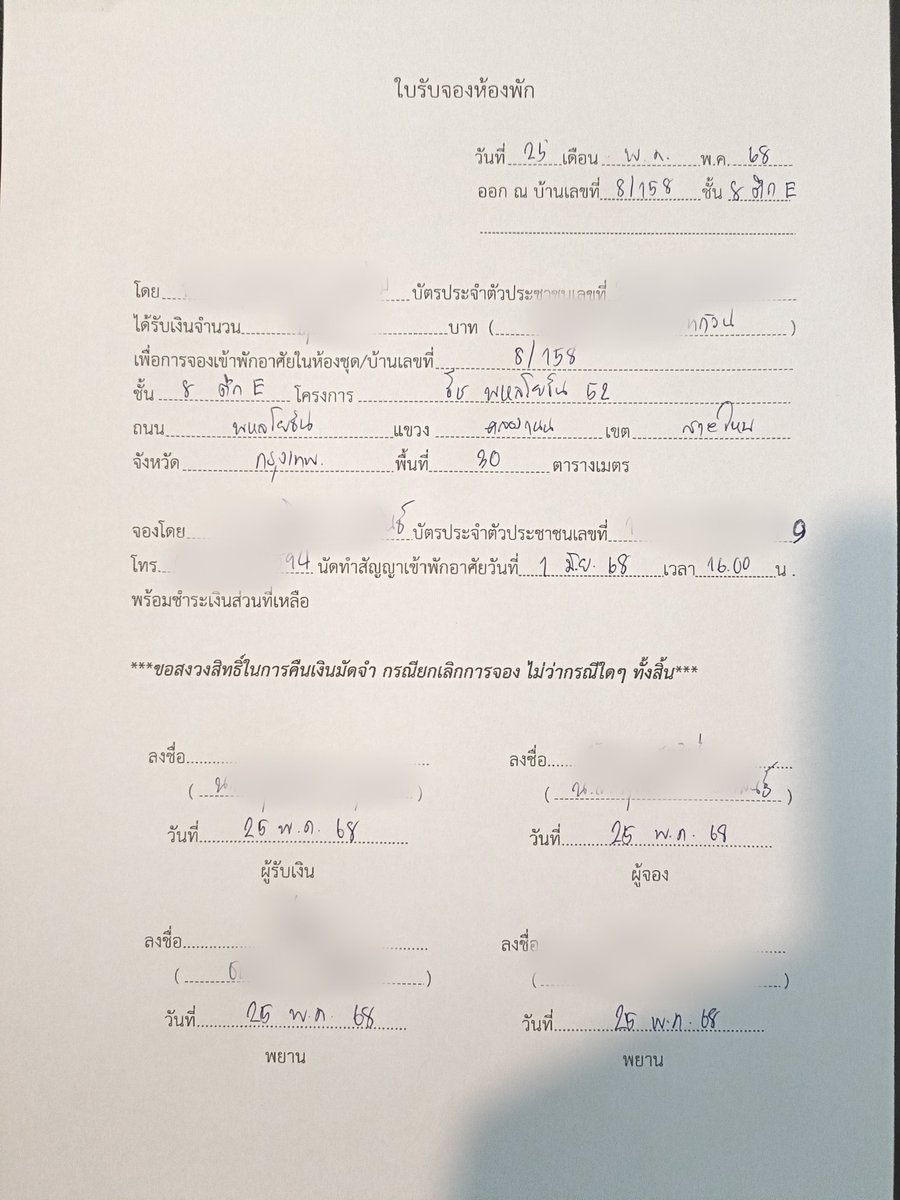 ใบรับจองห้องพัก
วันที่ 25 เดือน พ.ค. พ.ศ. 68
ออก ณ บ้านเลขที่ 8/158 ชั้น 8 ตึก E
โดย บัตรประจำตัวประชาชนเลขที่
ได้รับเงินจำนวน บาท ( )
เพื่อการจองเข้าพักอาศัยในห้องชุด/บ้านเลขที่ 8/158
ชั้น 8 ตึก E โครงการ ริช พหลโยธิน 52
ถนน พหลโยธิน แขวง คลองถนน เขต สายไหม
จังหวัด กรุงเทพ. พื้นที่ 30 ตารางเมตร
จองโดย บัตรประจำตัวประชาชนเลขที่ 9
โทร. 94 นัดทำสัญญาเข้าพักอาศัยวันที่ 1 มิย. 68 เวลา 16.00 น.
พร้อมชำระเงินส่วนที่เหลือ
***ขอสงวงสิทธิ์ในการคืนเงินมัดจำ กรณียกเลิกการจอง ไม่ว่ากรณีใดๆ ทั้งสิ้น***
ลงชื่อ ลงชื่อ
( น. ) ( น. )
วันที่ 25 พ.ค. 68 วันที่ 25 พ.ค. 68
ผู้รับเงิน ผู้จอง
ลงชื่อ ลงชื่อ
( ) ( )
วันที่ 25 พ.ค. 68 วันที่ 25 พ.ค. 68
พยาน พยาน